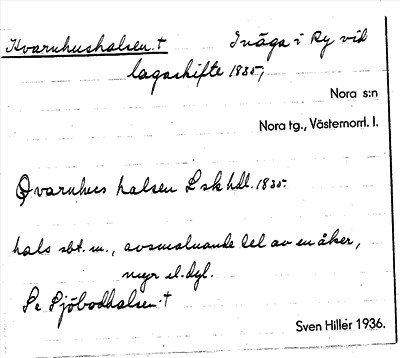 Kvarnhushalsen.† Inäga i Ry vid
lagaskifte 1835,
Nora s:n
Nora tg., Västernorrl. l.
Qvarnhus halsen L sk hdl. 1835.
hals sbt. m., avsmalnande del av en åker,
myr el. dyl.
Se Sjöbodhalsen.†
Sven Hiller 1936.